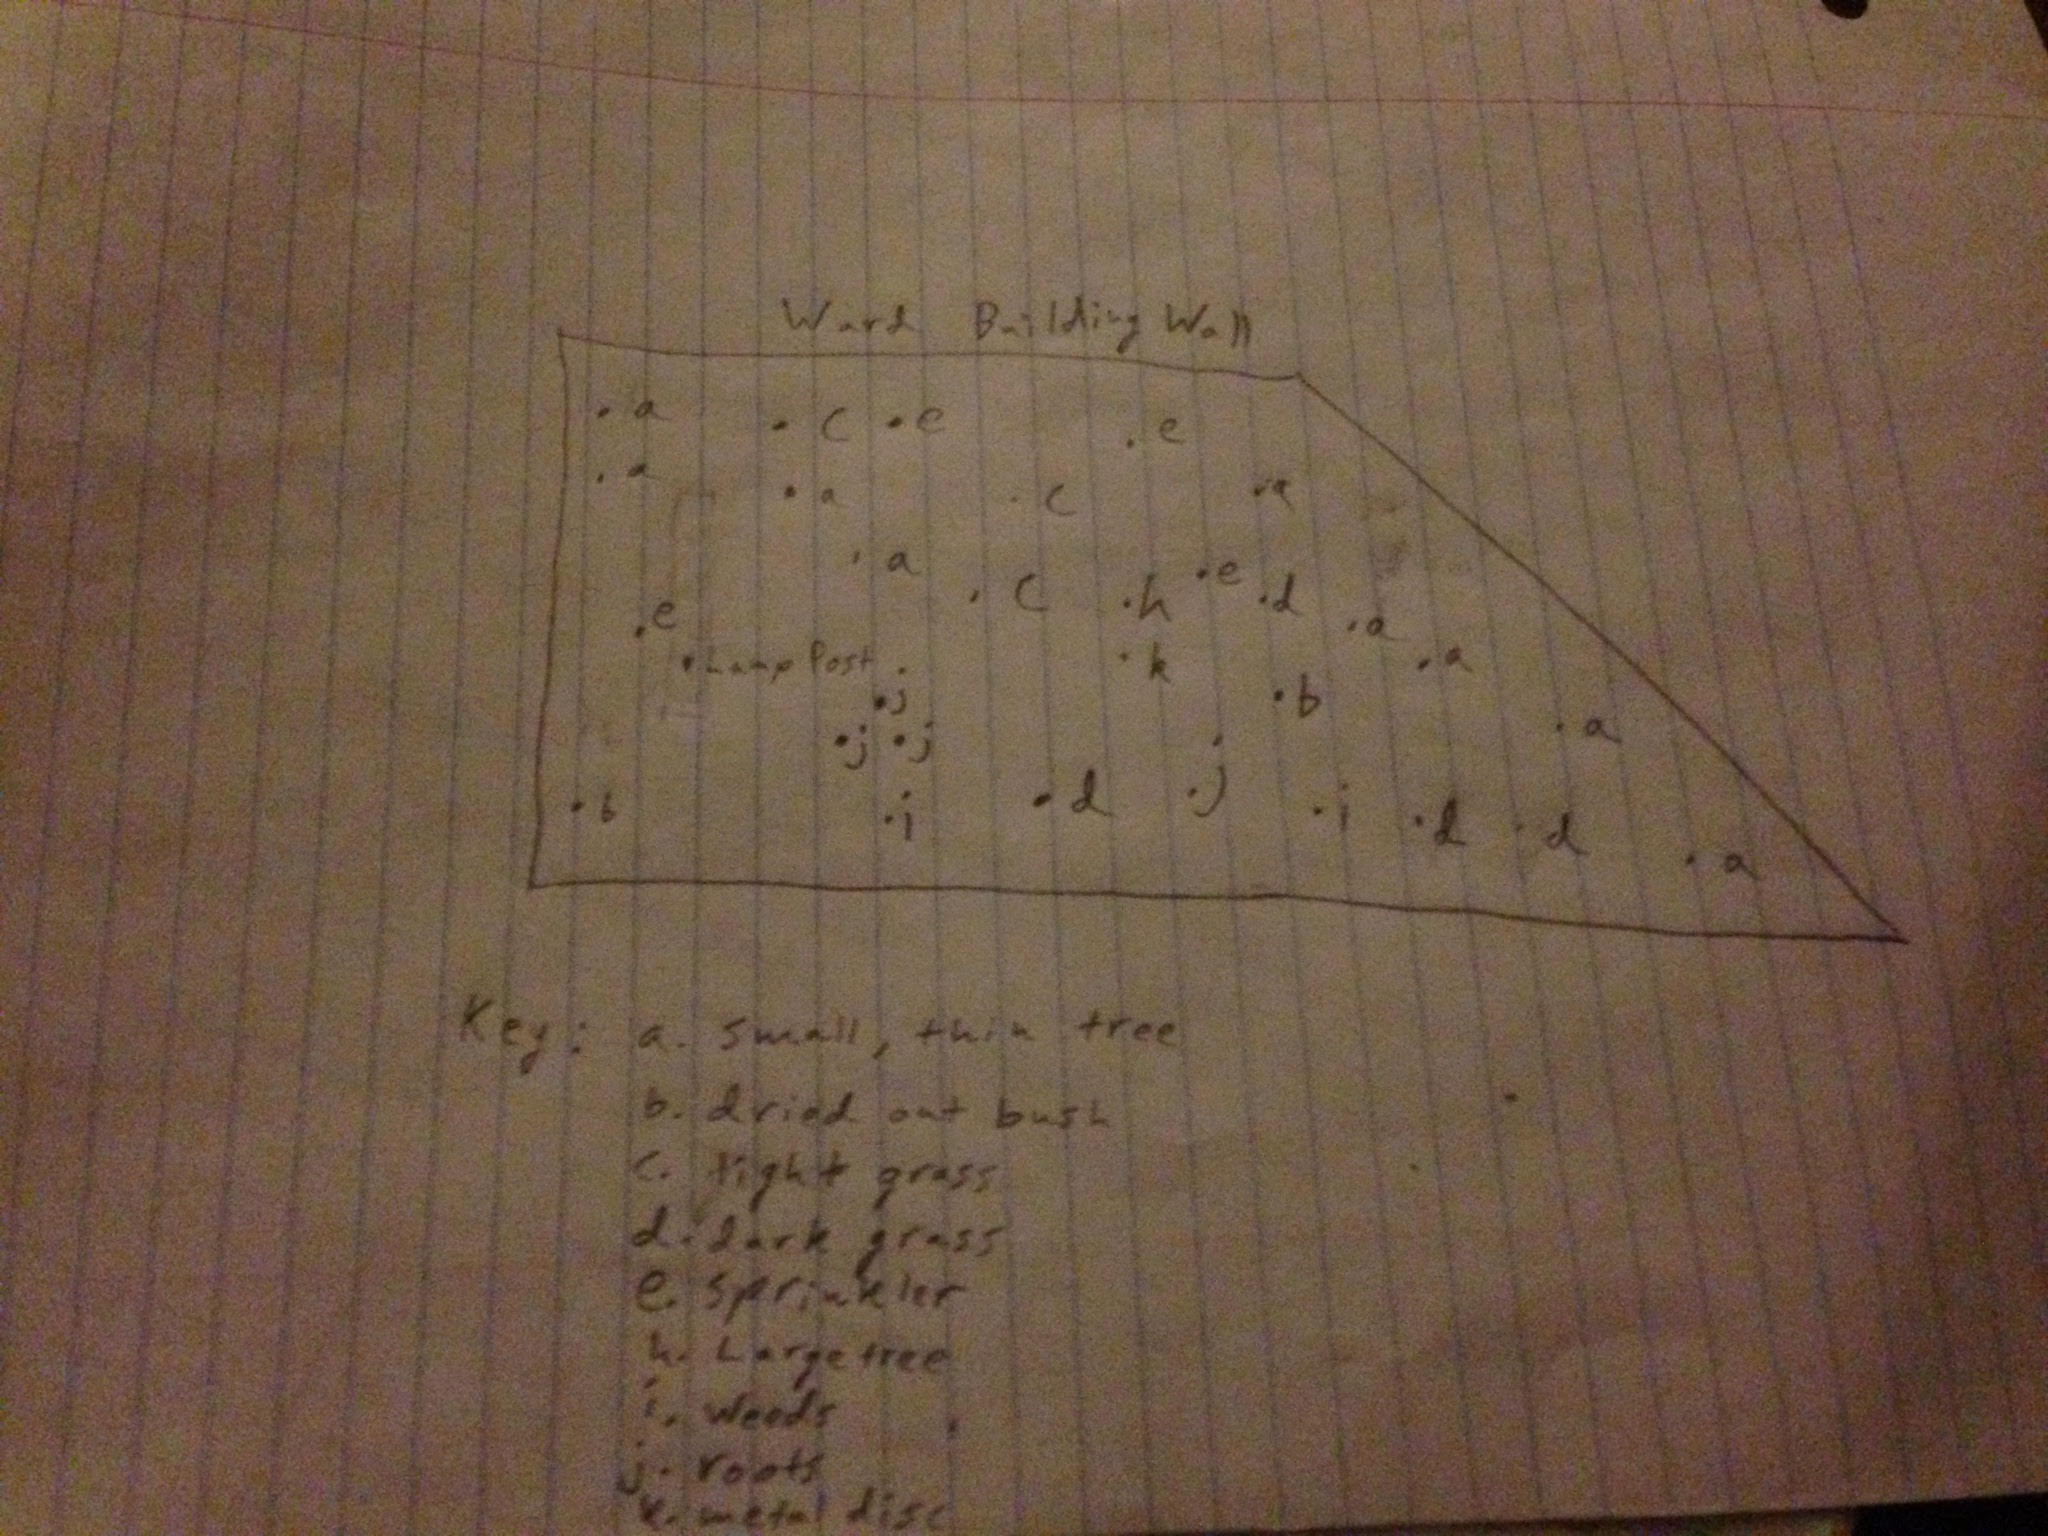 Ward Building Wall
a c e e
a a c a
a c h e d a
e
Lamp Post k a
j b
j j a
b i d j i d d a
Key: a. small, thin tree
b. dried out bush
c. light grass
d. dark grass
e. sprinkler
h. Large tree
i. weeds
j. roots
k. metal disc